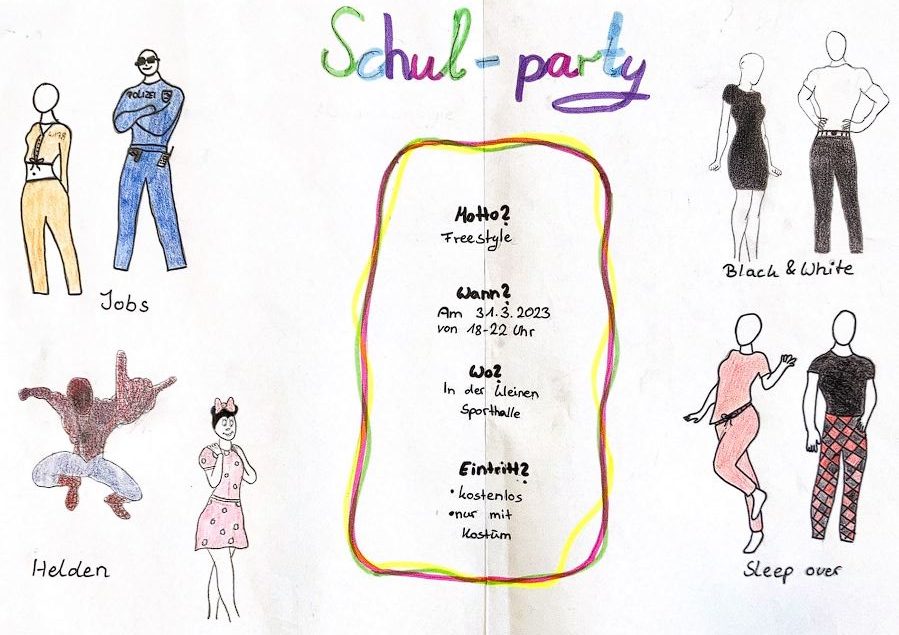 Schul-party
POLIZEI
Jobs
Motto?
Freestyle
Wann?
Am 31.3.2023
von 18-22 Uhr
Wo?
In der kleinen
Sporthalle
Eintritt?
• kostenlos
• nur mit
Kostüm
Black & White
Helden
Sleep over